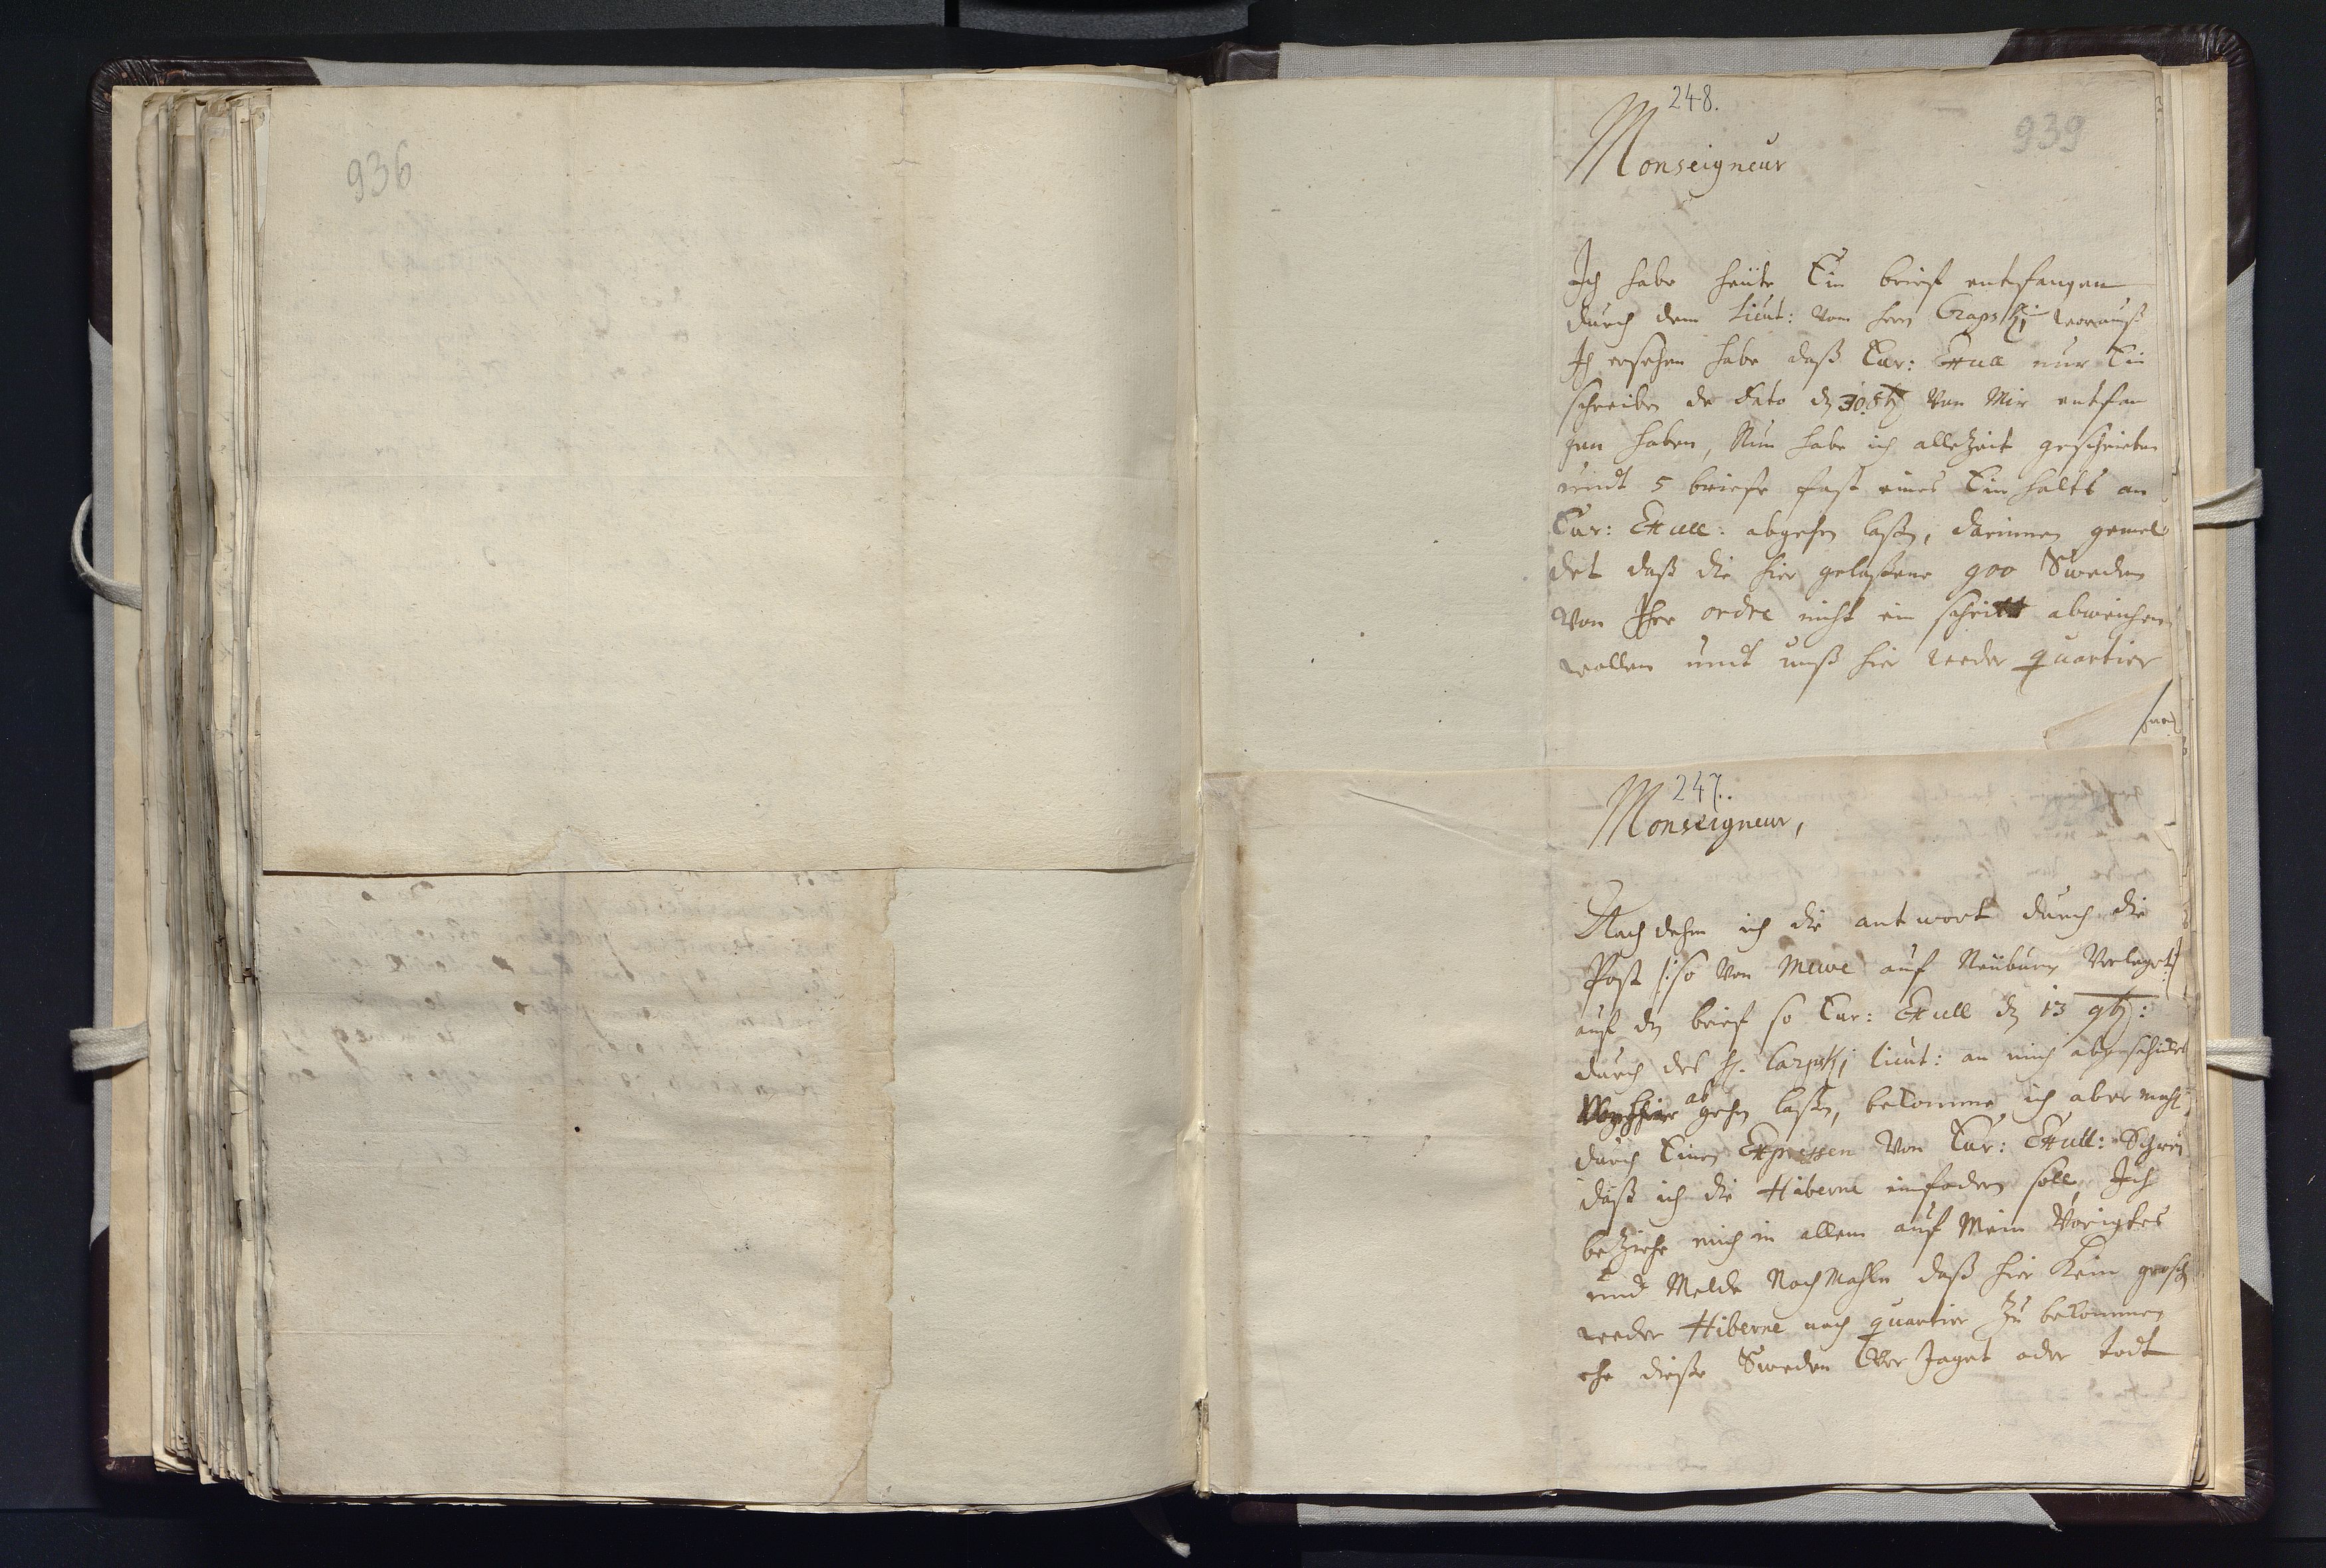 936
248.
939
Monseigneur
Ich habe heüte Ein brieff entfangen
durch dem Lieut: vom herrn worauß
Ich ersehen habe daß Eur: Excell nur Ein
schreiben de dato dn 30. 8br von Mir entfan
gen haben, Nun habe ich allezeit geschrieben
undt 5 brieffe fast eines Einhalts an
Eur: Excell: abgehen laßen, darinnen gemel
det daß die hier gelaßene 900 Sweden
von Ihre ordre nicht ein schritt abweichen
wollen undt unß hier weder quartier
247.
Monseigneur,
Nach dehm ich die antwort durch die
Post /:so von Mewe auf Neüburg verleget:/
auf dn brieff so Eur: Excell dn 13 9br:
durch des H. Lieut: an mich abgeschickt
ab gehen laßen, bekomme ich aber mahl
durch Einen Expressen von Eur: Excell: Schrei
daß ich die Hiberne einfodern soll, Ich
beziehe mich in allem auf Mein Voriges
und Melde Nochmahln daß hier Kein grosch
weder Hiberne noch quartier zu bekommen
ehe dieße Sweden verjaget oder todt